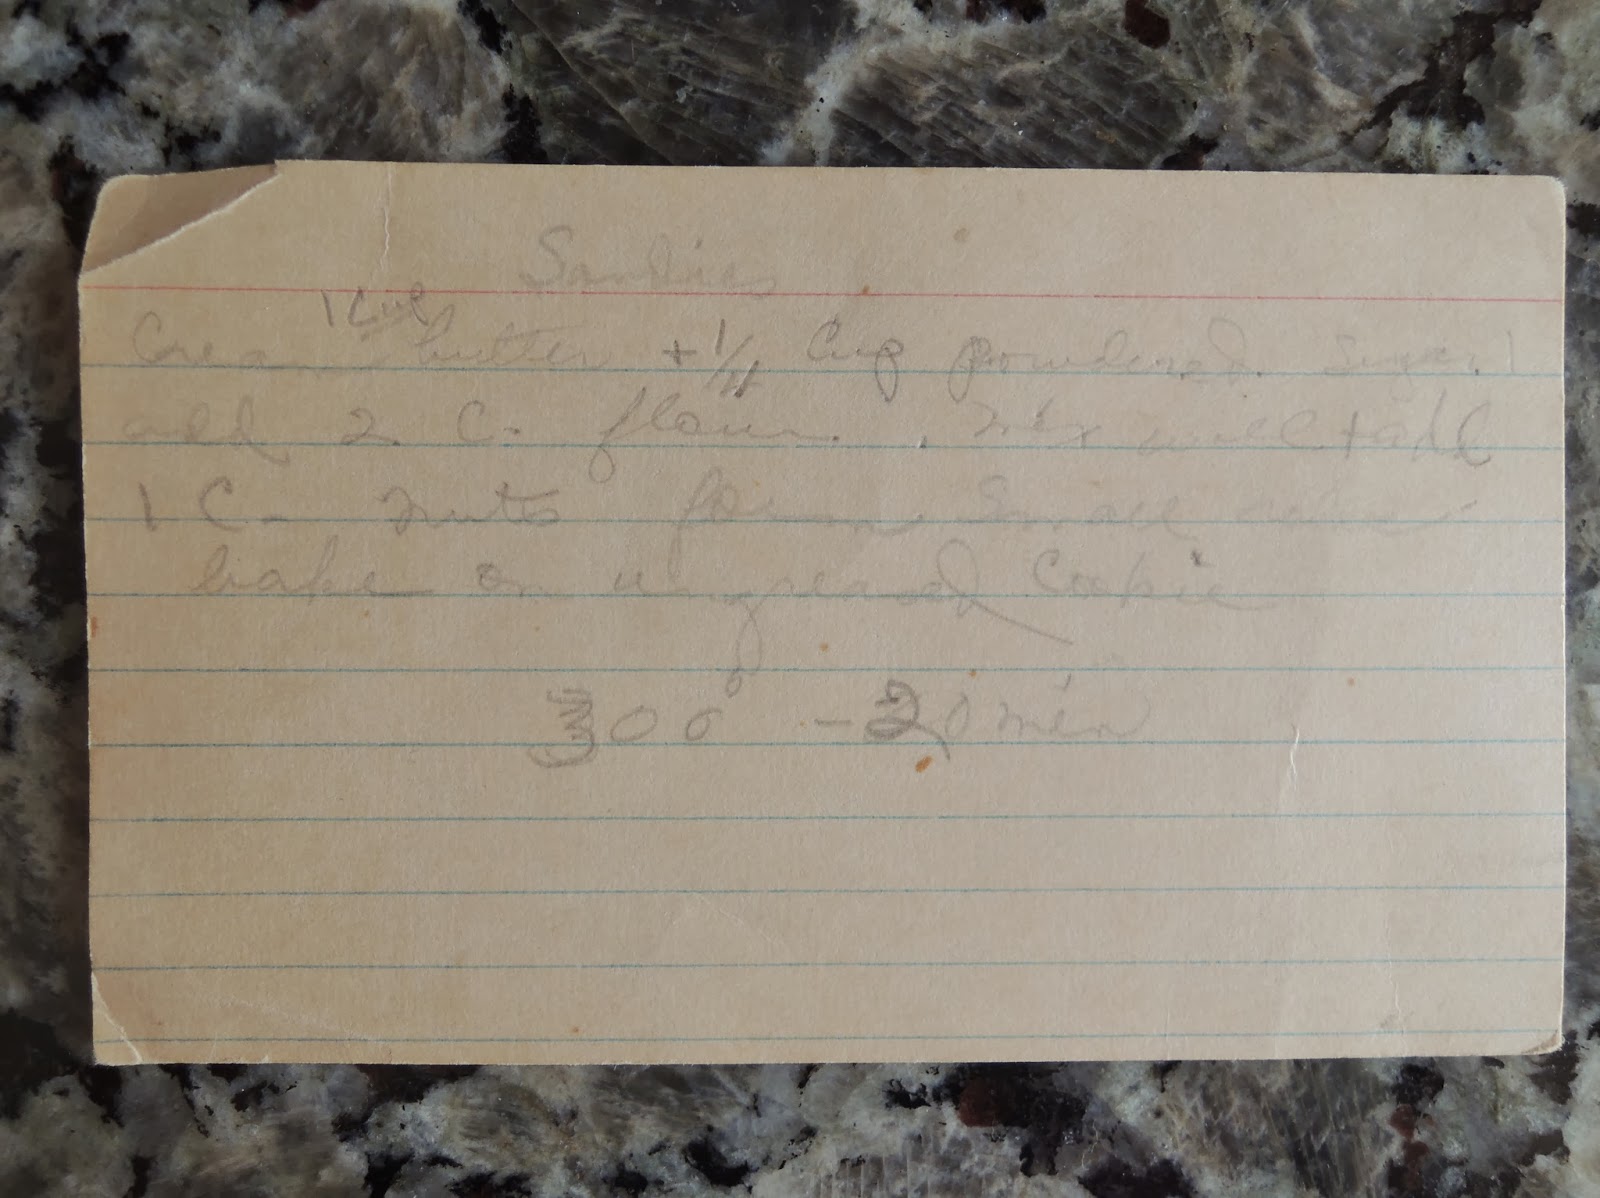 Sandies
1 Cup
Cream butter + 1/4 Cup powdered sugar.
add 2 C. flour. Mix well + add
1 C - nuts form small
bake on ungreased Cookie
300° - 20 min